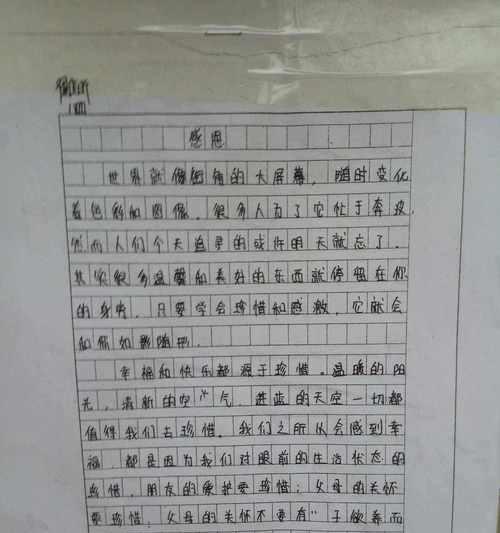 感恩
世界就像绚丽的大屏幕，随时变化
着色彩和图像。很多人为了它忙于奔波，
然而人们今天追寻的或许明天就忘了。
其实很多温馨和美好的东西就停留在你
的身旁，只要学会珍惜和感激，它就会
和你如影随形。
幸福和快乐都源于珍惜。温暖的阳
光，清新的空气，蓝的天空一切都
值得我们去珍惜。我们之所以会感到幸
福，都是因为我们对眼前的生活状态的
珍惜，朋友的爱护要珍惜；父母的关怀
要珍惜；父母的关怀不要有“子欲养而